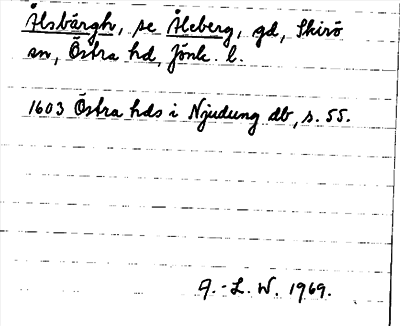 Ålsbärgh, se Åleberg, gd, Skirö
sn, Östra hd, Jönk. l.
1603 Östra hds i Njudung db, s. 55.
A.-L. W. 1969.